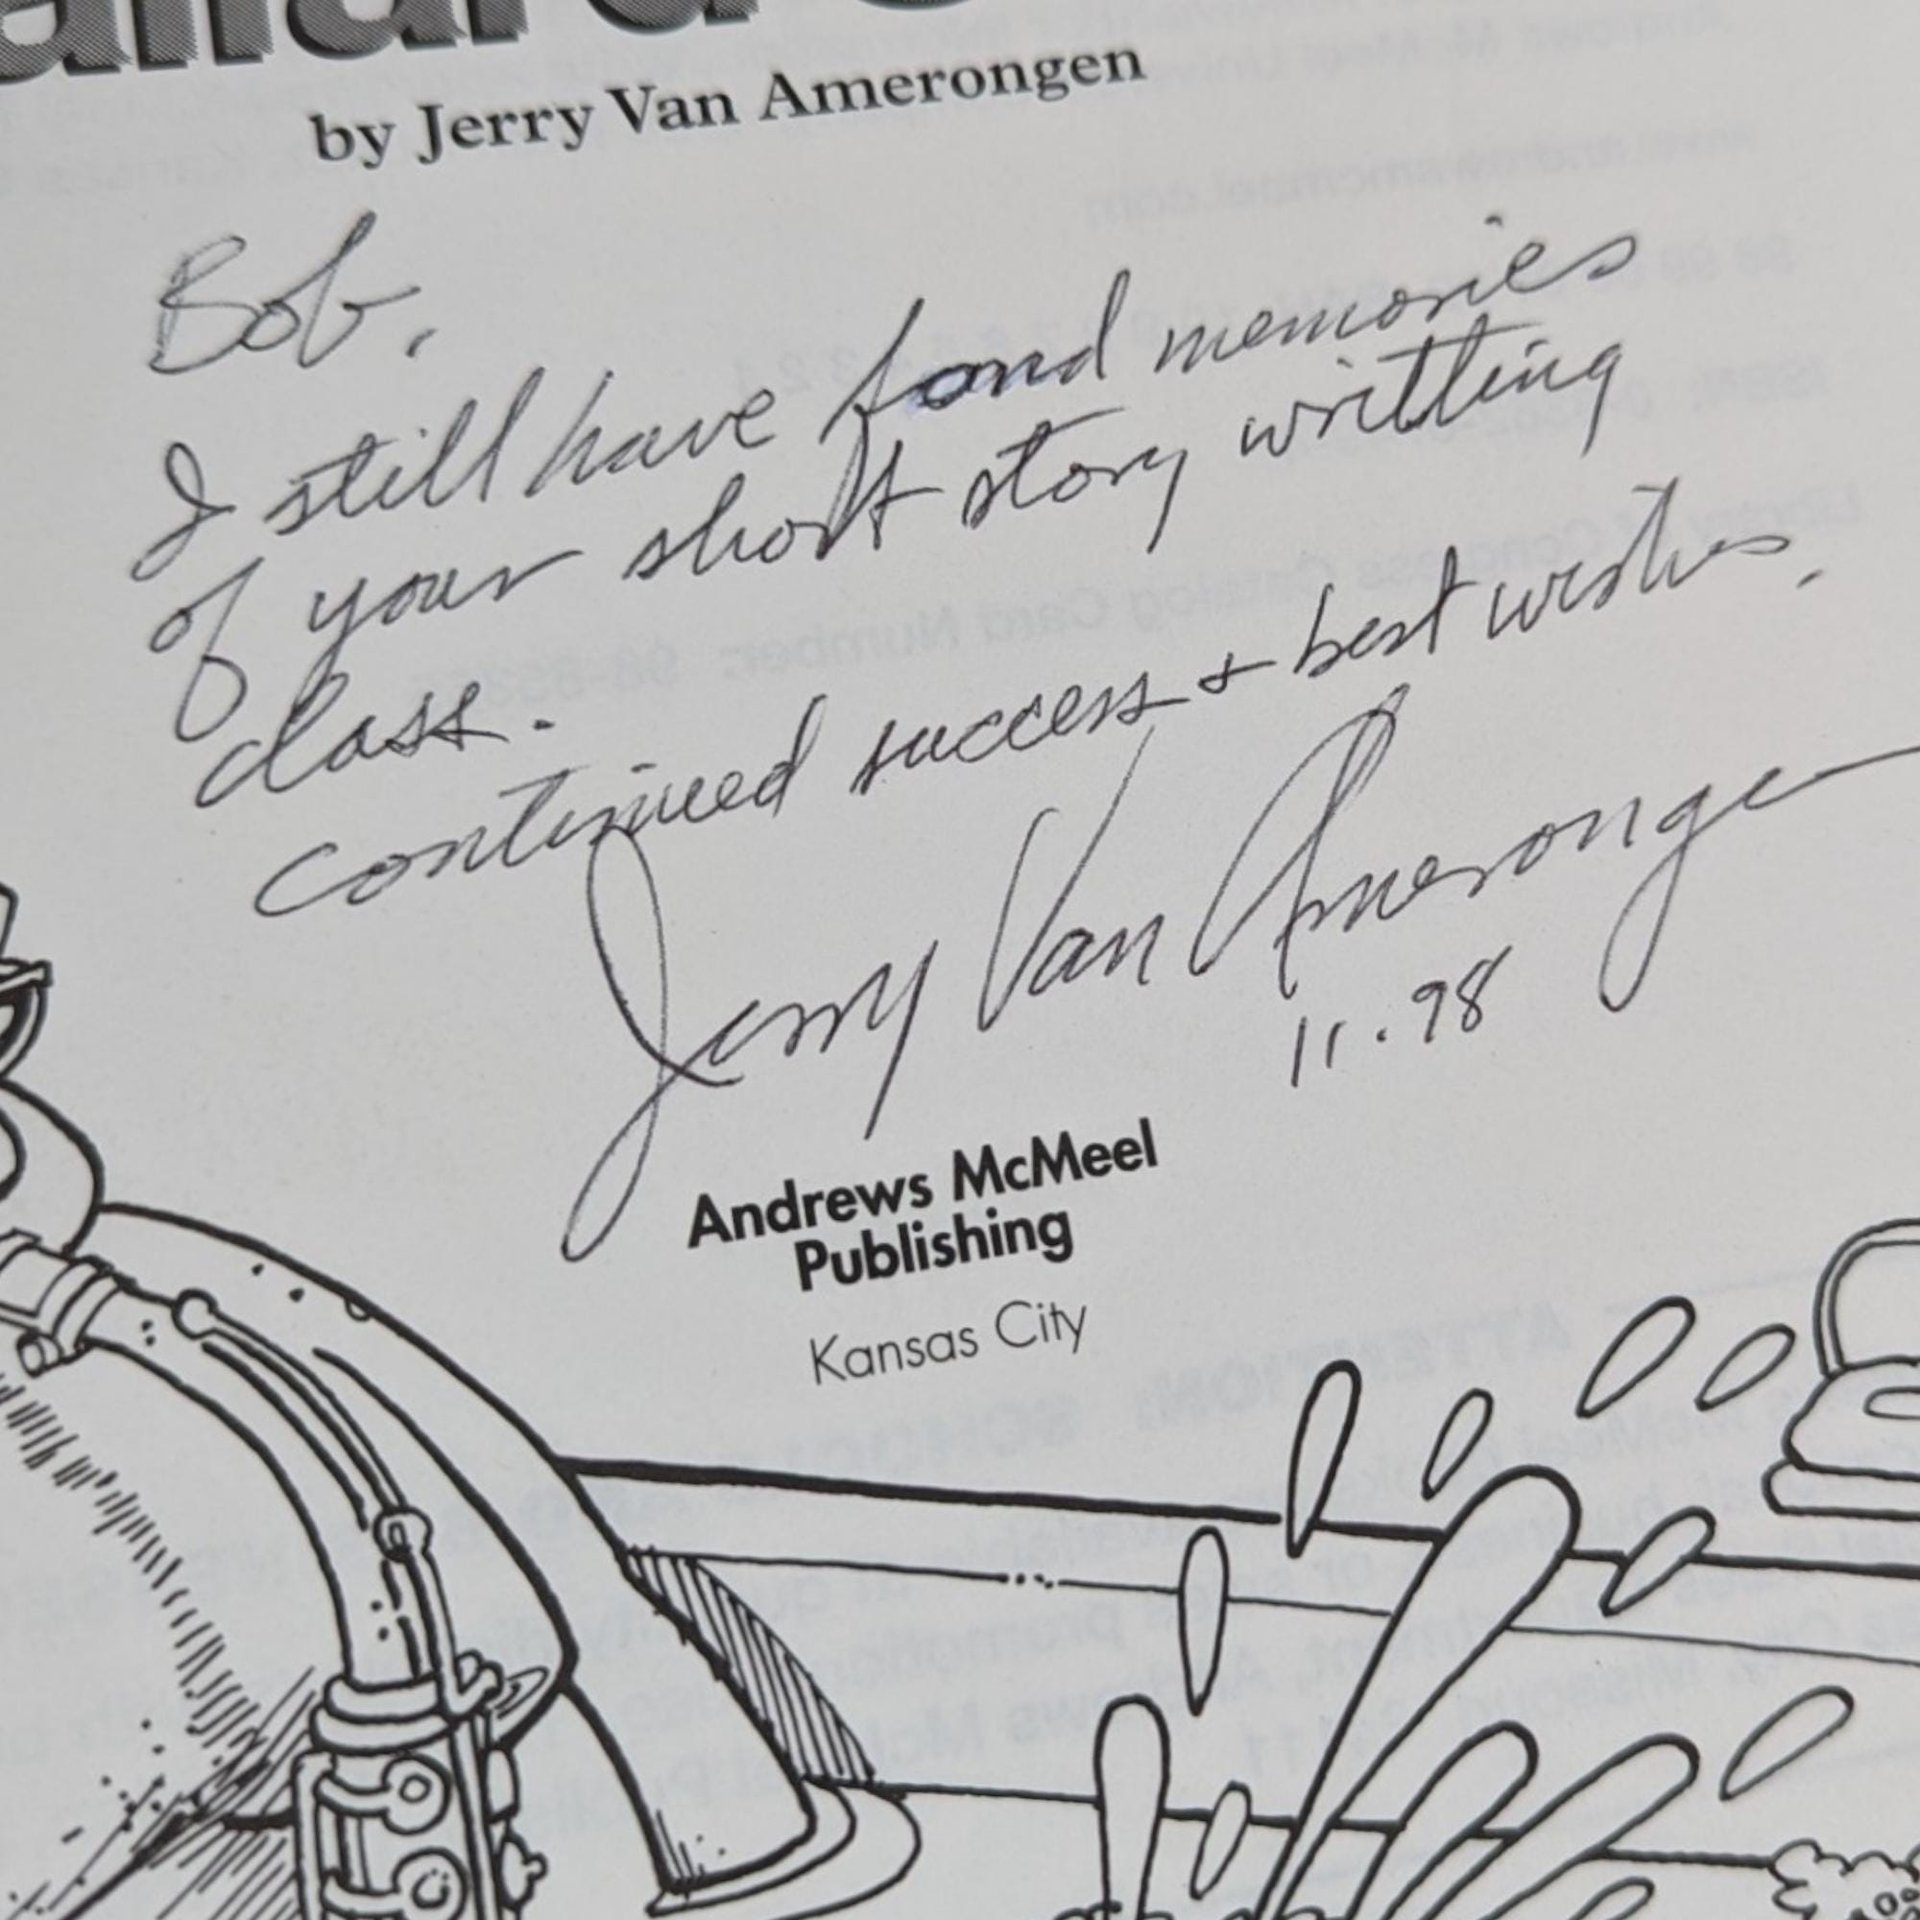 by Jerry Van Amerongen
Bob,
I still have fond memories
of your short story writting
class.
Continued success + best wishes,
Jerry Van Amerongen
11.98
Andrews McMeel
Publishing
Kansas City